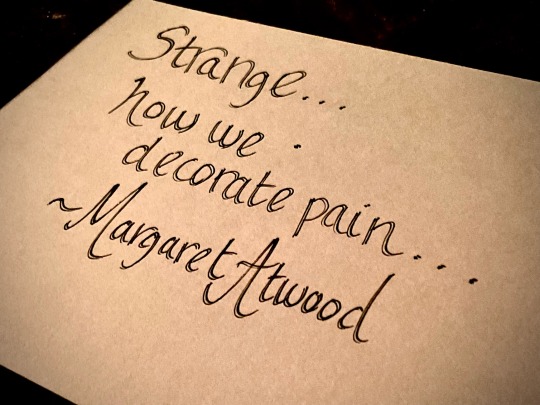 Strange...
how we .
decorate pain...
~Margaret Atwood